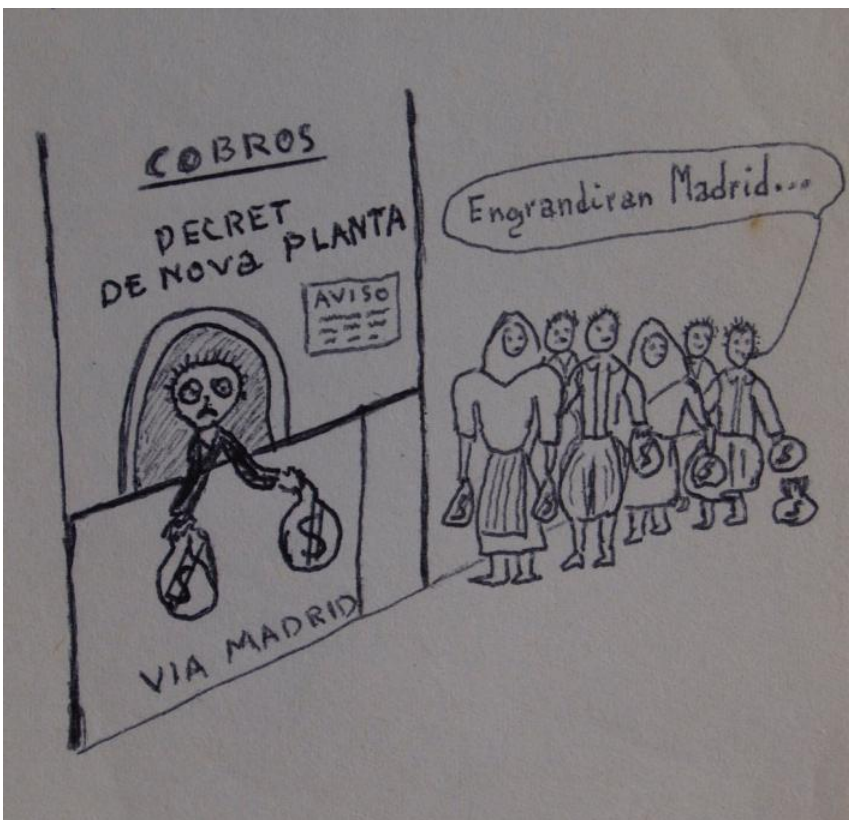 COBROS
DECRET
DE NOVA PLANTA
AVISO
Engrandiran Madrid...
$ $
$ $ $
VIA MADRID